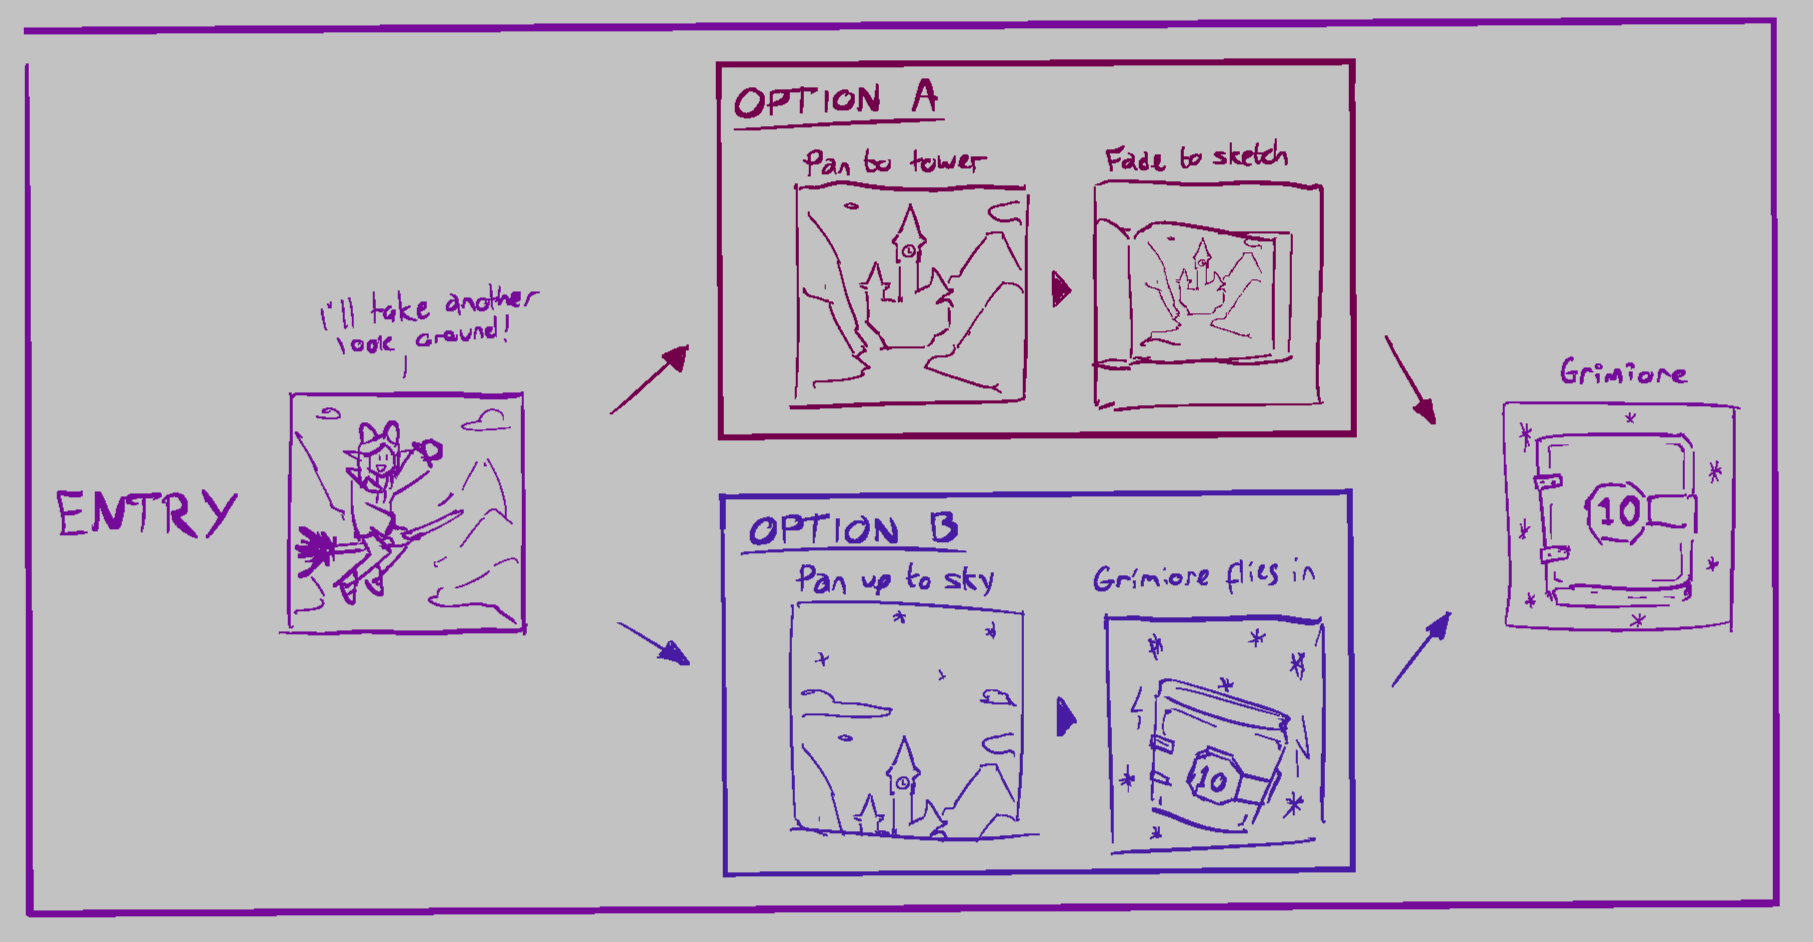 ENTRY
I'll take another
look around!
OPTION A
Pan to tower
Fade to sketch
OPTION B
Pan up to sky
Grimiore flies in
10
Grimiore
10